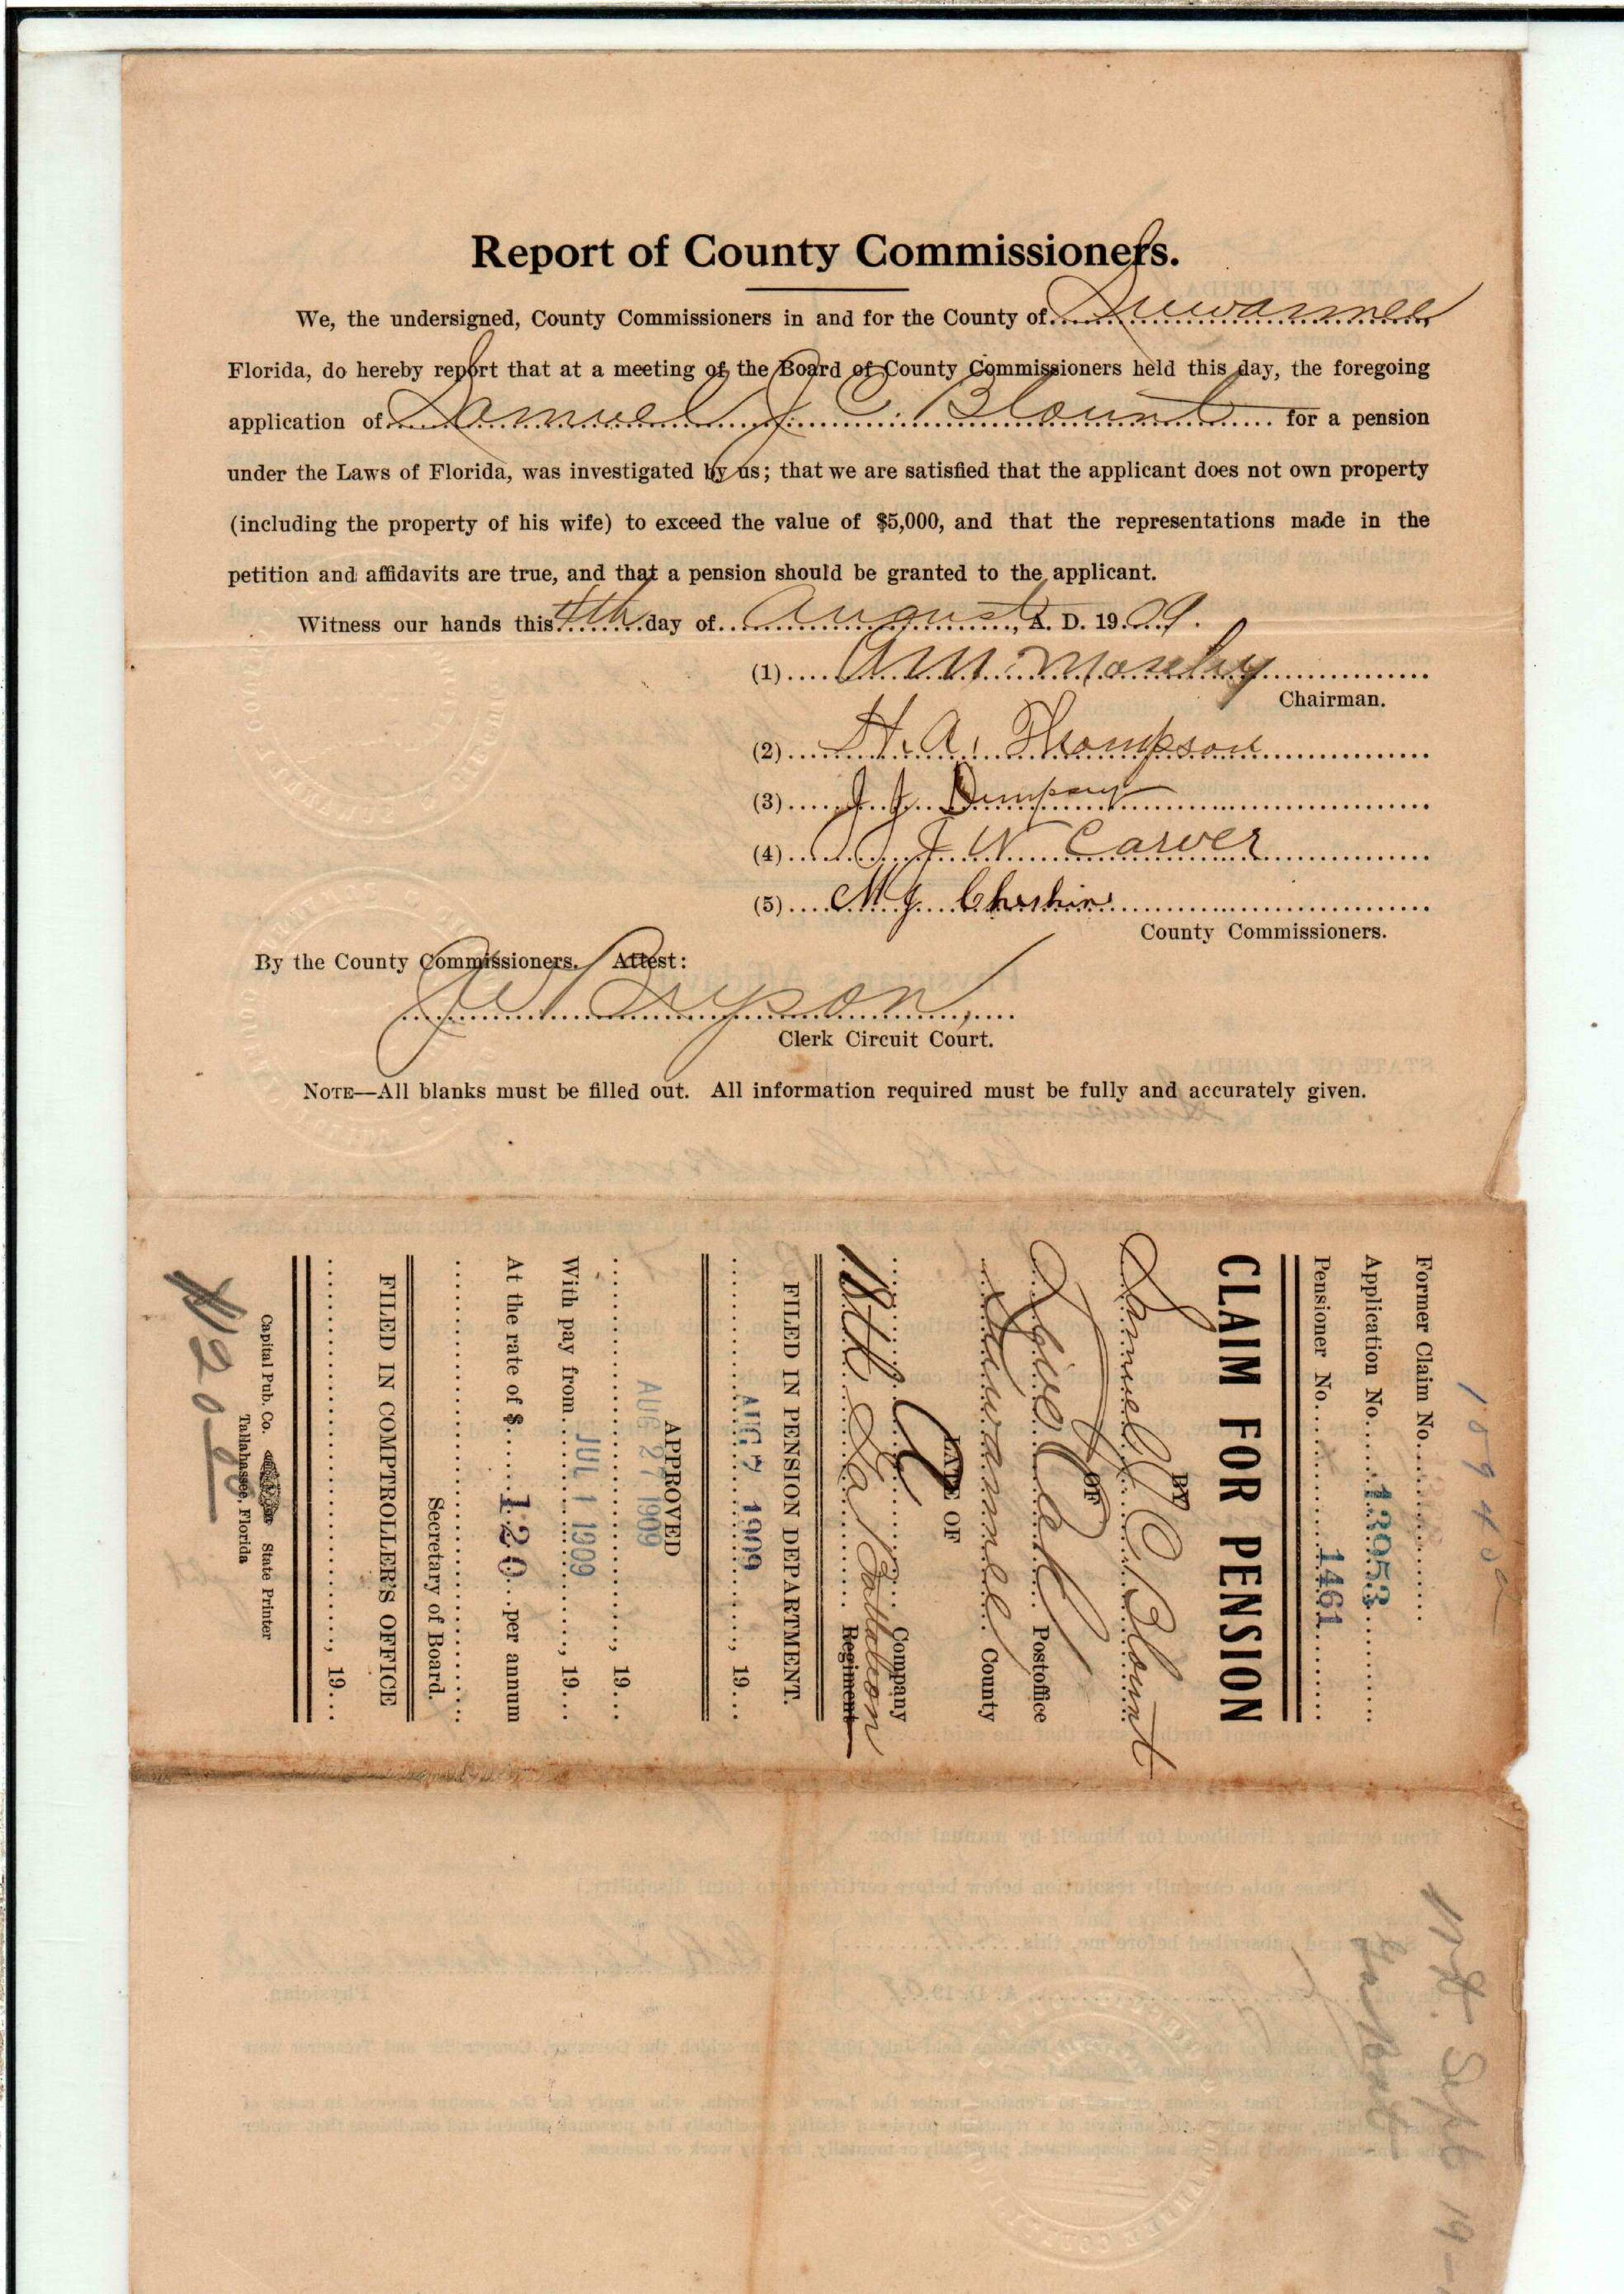 Report of County Commissioners.
We, the undersigned, County Commissioners in and for the County of Suwannee
Florida, do hereby report that at a meeting of the Board of County Commissioners held this day, the foregoing
application of Samuel J. C. Blount for a pension
under the Laws of Florida, was investigated by us; that we are satisfied that the applicant does not own property
(including the property of his wife) to exceed the value of $5,000, and that the representations made in the
petition and affidavits are true, and that a pension should be granted to the applicant.
Witness our hands this 4th day of August, A. D. 1909.
(1) A M. Mosely
Chairman.
(2) H. A. Thompson
(3) J. J. Dempsey
(4) J W Carver
(5) M J
County Commissioners.
By the County Commissioners. Attest:
J W Bryson
Clerk Circuit Court.
NOTE—All blanks must be filled out. All information required must be fully and accurately given.
Former Claim No.
Application No. 13953
Pensioner No. 1461
CLAIM FOR PENSION
BY
Samuel J C Blount
OF
Live Oak Postoffice
Suwannee County
LATE OF
Company
18th Ga Battalion Regiment
FILED IN PENSION DEPARTMENT.
AUG 7 1909, 19
APPROVED
AUG 27 1909
, 19
With pay from JUL 1 1909, 19
At the rate of $ 120 per annum
Secretary of Board.
FILED IN COMPTROLLER'S OFFICE
, 19
Capital Pub. Co. State Printer
Tallahassee, Florida